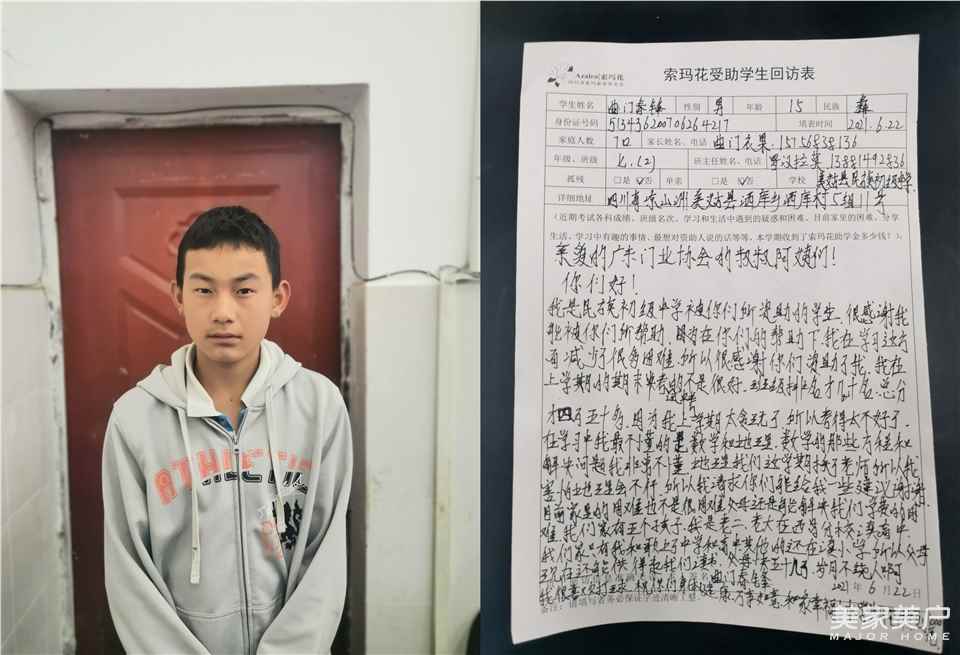 ATHLETIC
Azalea索玛花
索玛花受助学生回访表
学生姓名 曲门泰锋 性别 男 年龄 15 民族 彝
身份证号码 513436200706264217 填表时间 2021.6.22
家庭人数 7口 家长姓名、电话 曲门衣果 15756838136
年级、班级 七.(2) 班主任姓名、电话 13881492836
孤残 □是 ☑否 单亲 □是 ☑否 学校 美姑县民族初级中学
详细地址 四川省凉山州美姑县洒库乡洒库村5组11号
(近期考试各科成绩、班级名次、学习和生活中遇到的疑惑和困难、目前家里的困难、分享
生活、学习中有趣的事情、最想对资助人说的话等等,本学期收到了索玛花助学金多少钱?)。
亲爱的广东门业协会的叔叔阿姨们!
你们好!
我是民族初级中学被你们所资助的学生.很感谢我
能被你们所帮助.因为在你们的帮助下.我在学习这方
面减少不很多困难.所以很感谢你们资助了我.我在
上学期的期末考的不是很好.班级排名才几十名.总分
才四百五十多.因为我上学期太贪玩了所以考得太不好了.
在学习中我最不懂的是数学和地理.数学的那些方程和
解决问题我非常不懂.地理我们这学期换了老师所以我
害怕地理会不行.所以我请求你们能给我一些建议.谢谢.
目前家里的困难也不是很困难.父母还是能解决我们学费的困
难.我们家有五个孩子.我是老二.老大在西昌读高中.
我们家只有我和老大上了中学和高中其他的还在读小学.所以父母
现在还能供得起我们读书.父母快五十几了.岁月不饶人啊
曲门泰锋
2021年6月22日
美家美户
MAJOR HOME